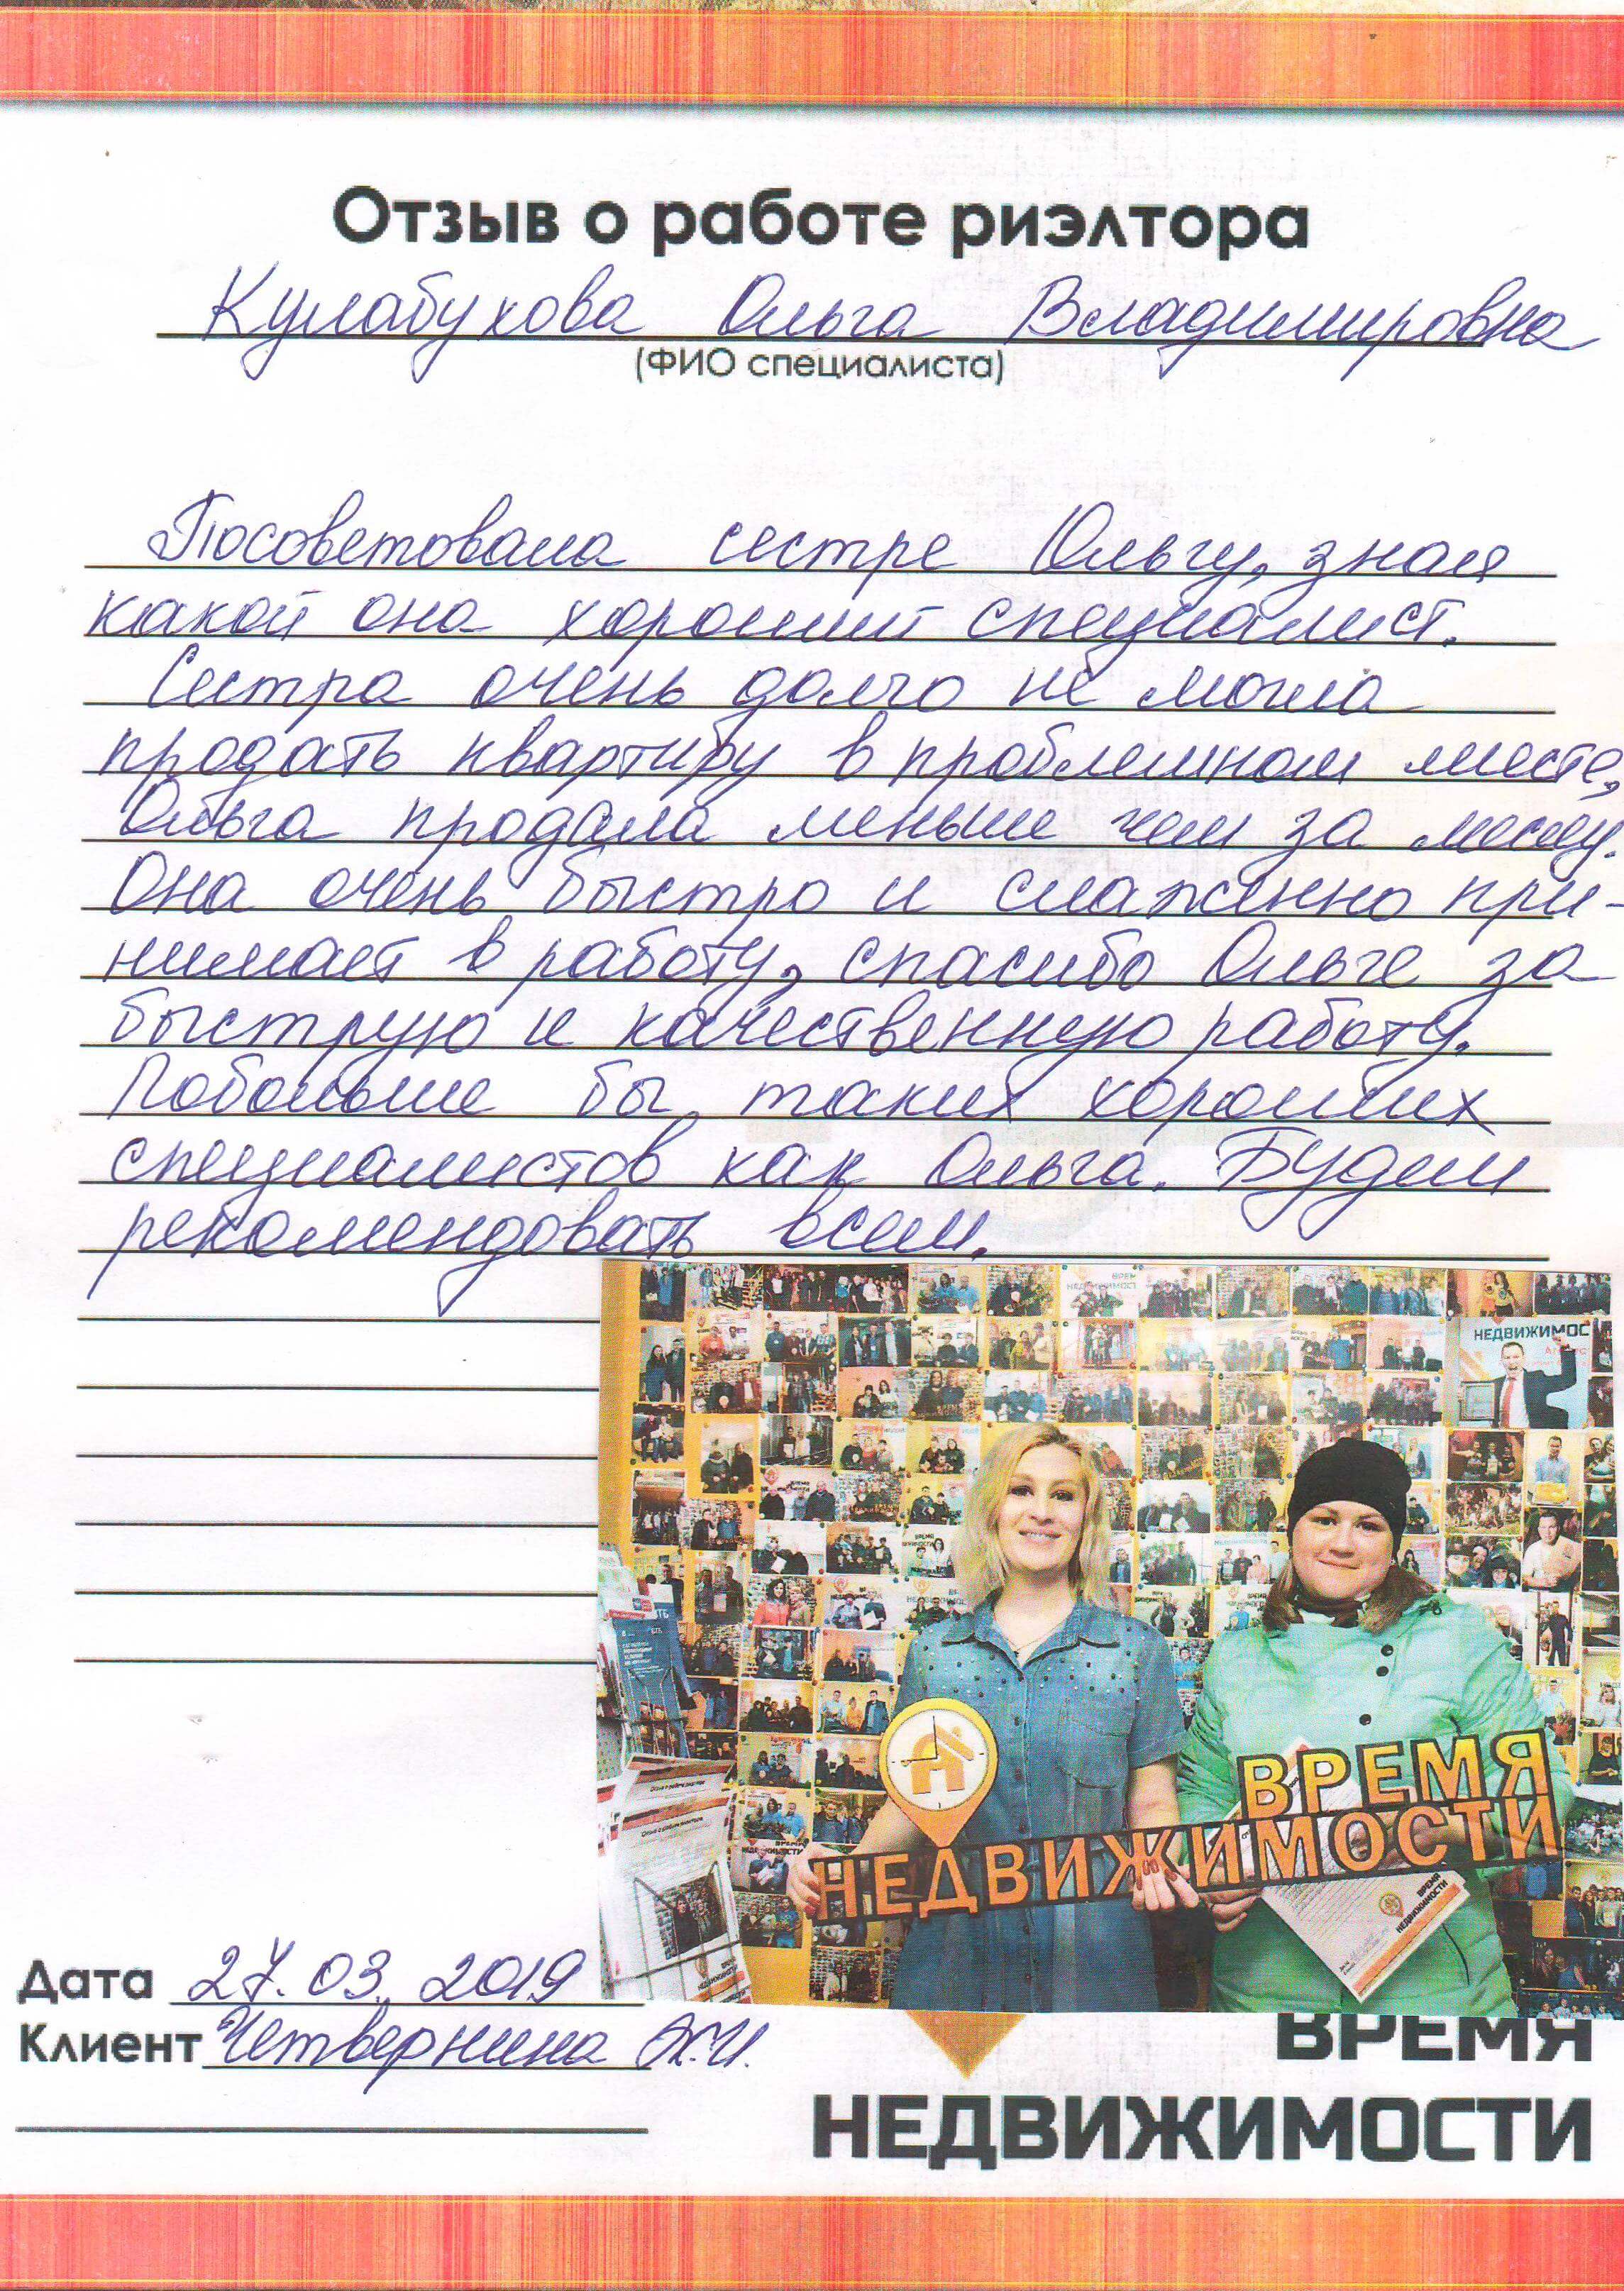 Отзыв о работе риэлтора
Кулабухова Ольга Владимировна
(ФИО специалиста)
Посоветовала сестре Ольгу, зная
какой она хороший специалист.
Сестра очень долго не могла
продать квартиру в проблемном месте,
Ольга продала меньше чем за месяц.
Она очень быстро и слаженно при-
нимает в работу, спасибо Ольге за
быструю и качественную работу.
Побольше бы таких хороших
специалистов как Ольга. Будем
рекомендовать всем.
НЕДВИЖИМОС
ВРЕМЯ
НЕДВИЖИМОСТИ
ВРЕМЯ
НЕДВИЖИМОСТИ
Дата 27.03.2019
Клиент Четвернина Ж.И.
ВРЕМЯ
НЕДВИЖИМОСТИ